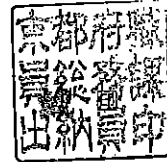 京都府職
員総務課
出納員印